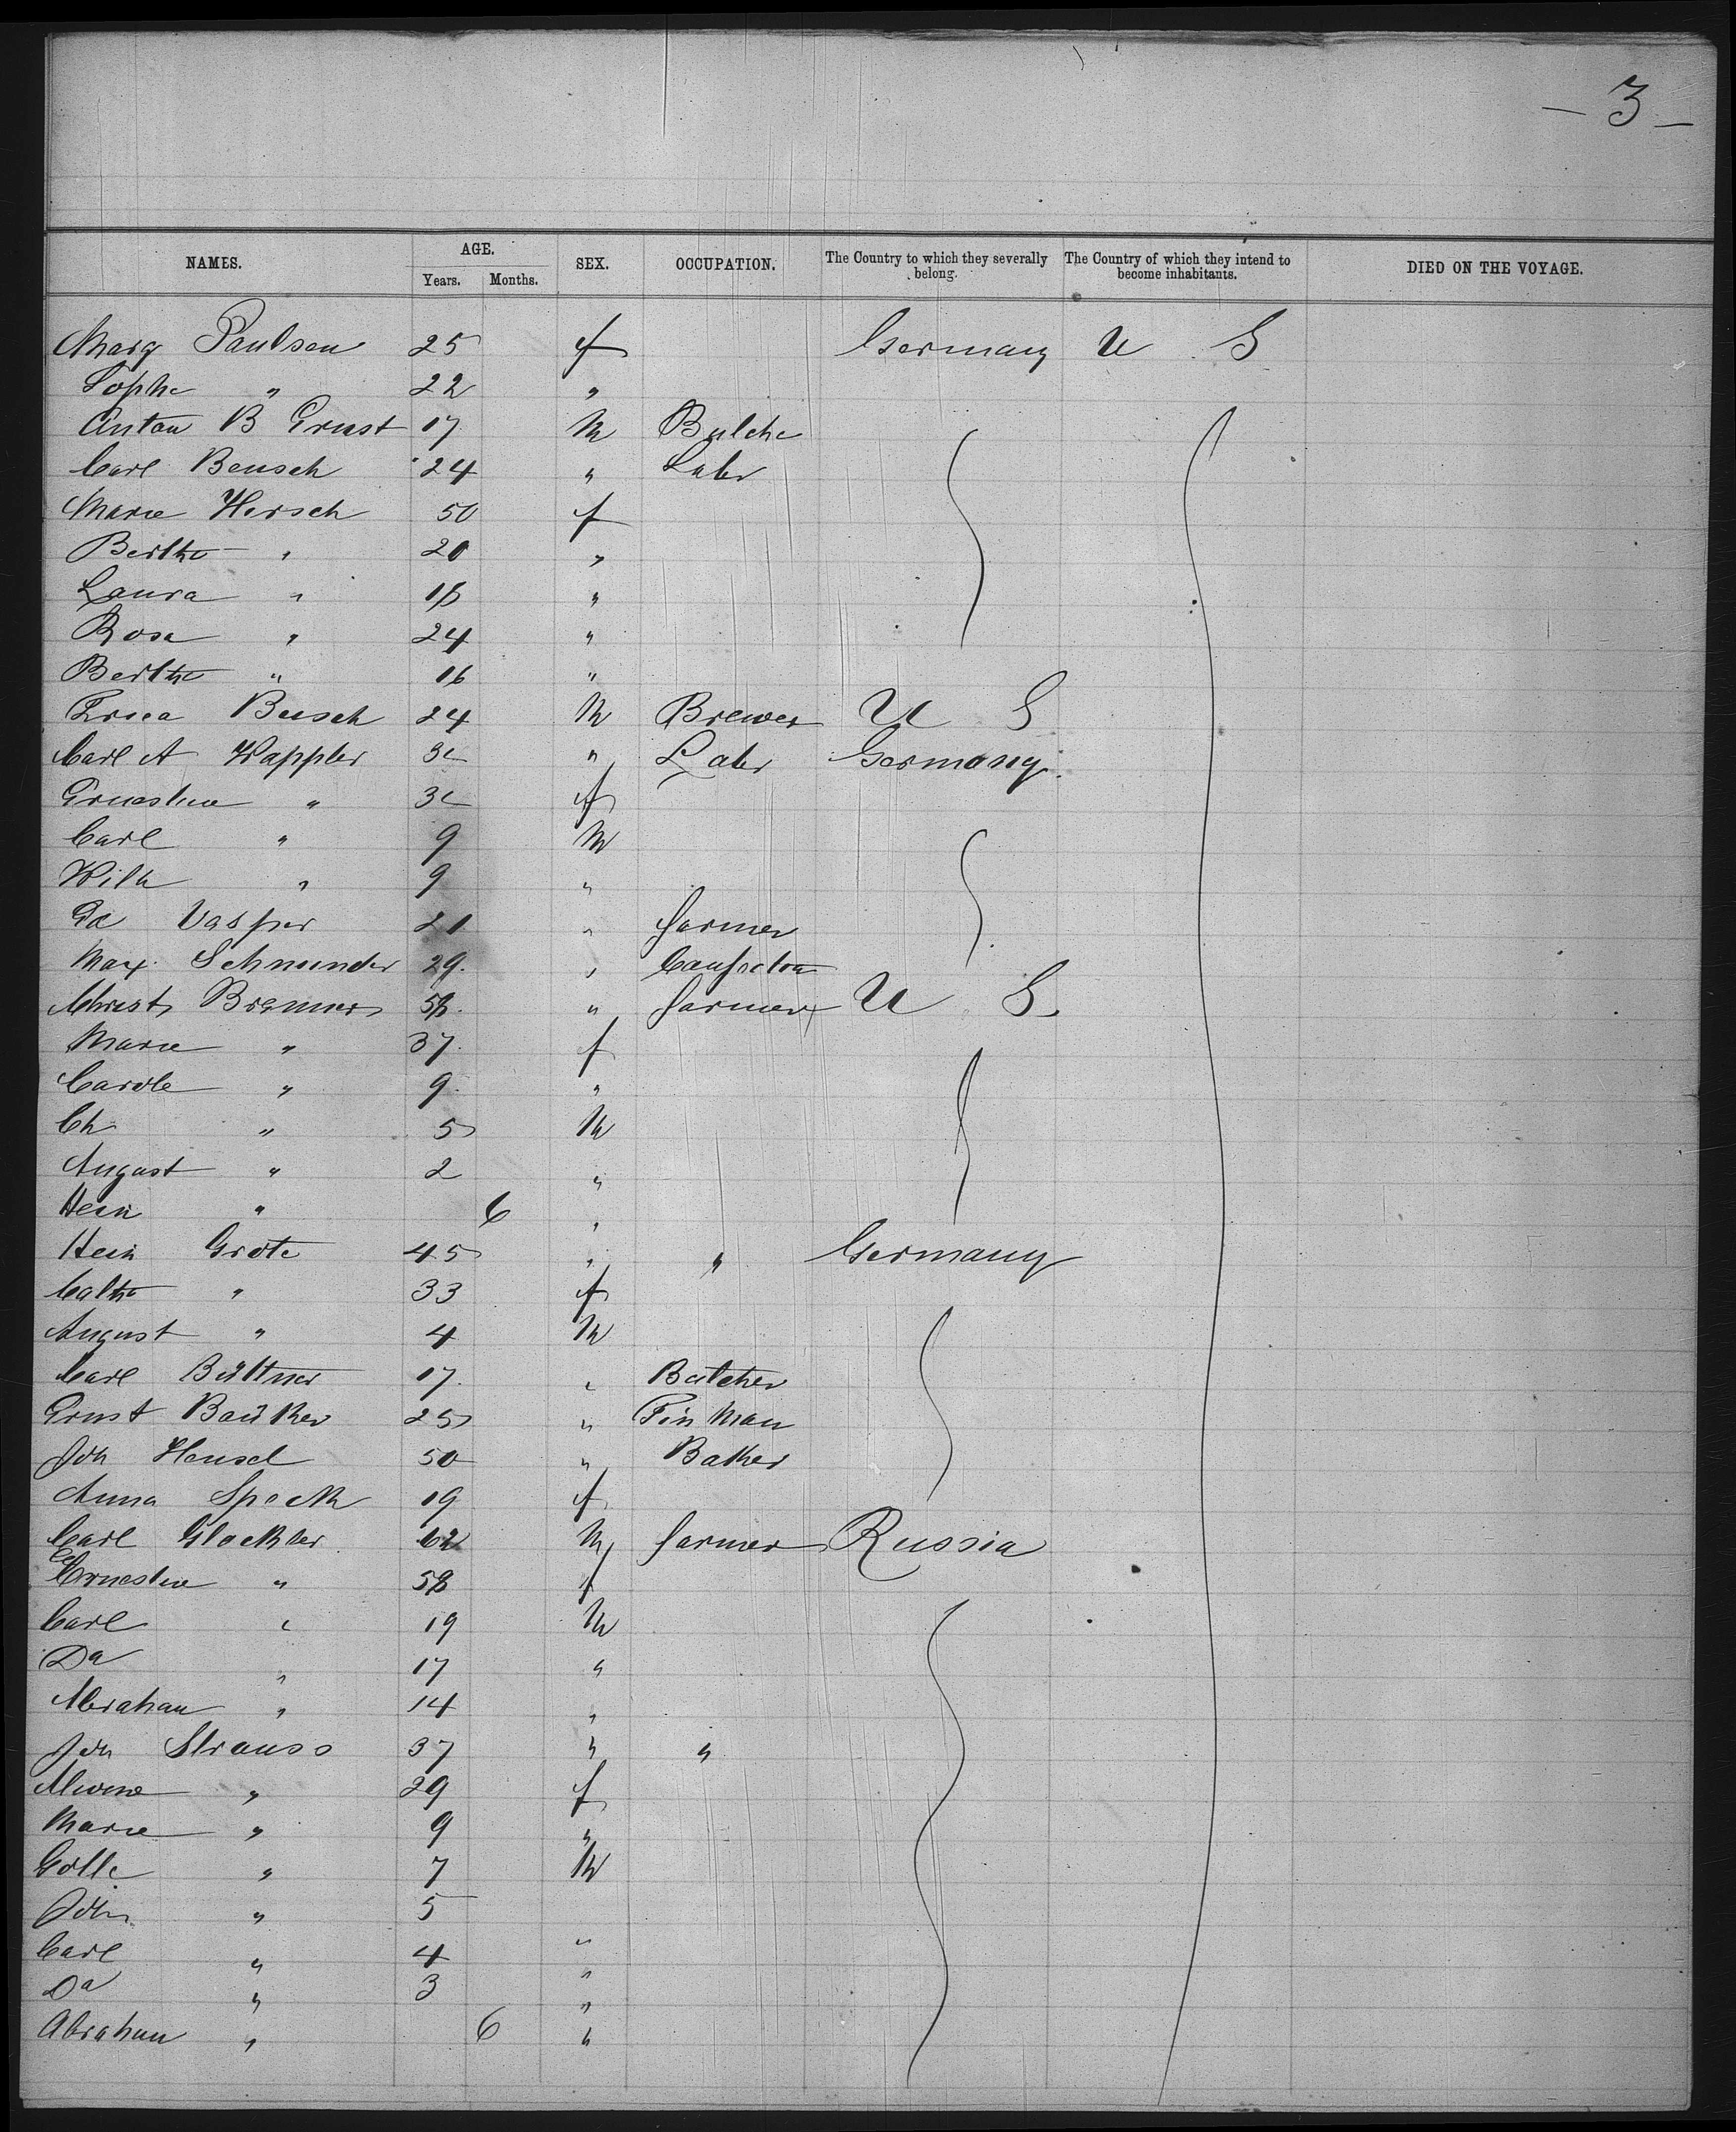 — 3 —
NAMES. AGE. Years. Months. SEX. OCCUPATION. The Country to which they severally belong. The Country of which they intend to become inhabitants. DIED ON THE VOYAGE.
Marg Paulsen 25 f Germany U S
Sophe " 22 "
Anton B Ernst 17 M Butche
Carl Beusch 24 " Labr
Marie Hersch 50 f
Bertha " 20 "
Laura " 18 "
Rosa " 24 "
Bertha " 16 "
Busch 24 M Brewer U S
Carl A Wappler 3 " Labr Germany
Ernestine " 3 f
Carl " 9 M
Wilh " 9 "
Ed Vasper 21 " farmer
Max 29 "
Christ Bremer 58 " farmer U S
Marie " 37 f
Carole " 9 "
Ch " 5 M
August " 2 "
Hein " 6 "
Hein Grote 45 " " Germany
Cathe " 33 f
August " 4 M
Carl Büttner 17 " Butcher
Ernst Baüker 25 " Tin Man
Joh Hensel 50 " Baker
Anna Speck 19 f
Carl Glockler 62 M farmer Russia
Ernestine " 58 f
Carl " 19 M
Da " 17 "
Abraham " 14 "
Joh Strauss 37 " "
Alwine " 29 f
Marie " 9 "
Gottl " 7 M
Joh " 5
Carl " 4 "
Da " 3 "
Abraham " 6 "